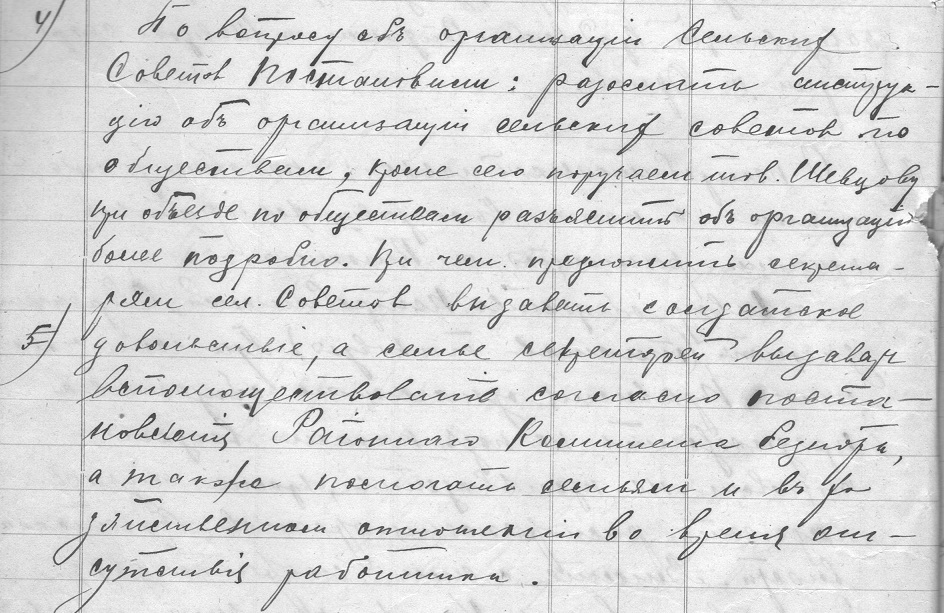 4) По вопросу объ организаціи Сельских
Советов Постановили: разослать инструк-
цію объ организаціи сельских советов по
обществам, кроме сего поручаем тов. Шевцову
при объезде по обществам разъяснить объ организаціи
более подробно. При чем предложить секрета-
рям сел. Советов выдавать солдатское
5) довольствіе, а семье секретарей выдавать
вспомоществованіе согласно поста-
новленія Районнаго Комитета бедноты,
а также помогать семьям и въ хо
зяйственном отношеніи во время от-
сутствія работника.